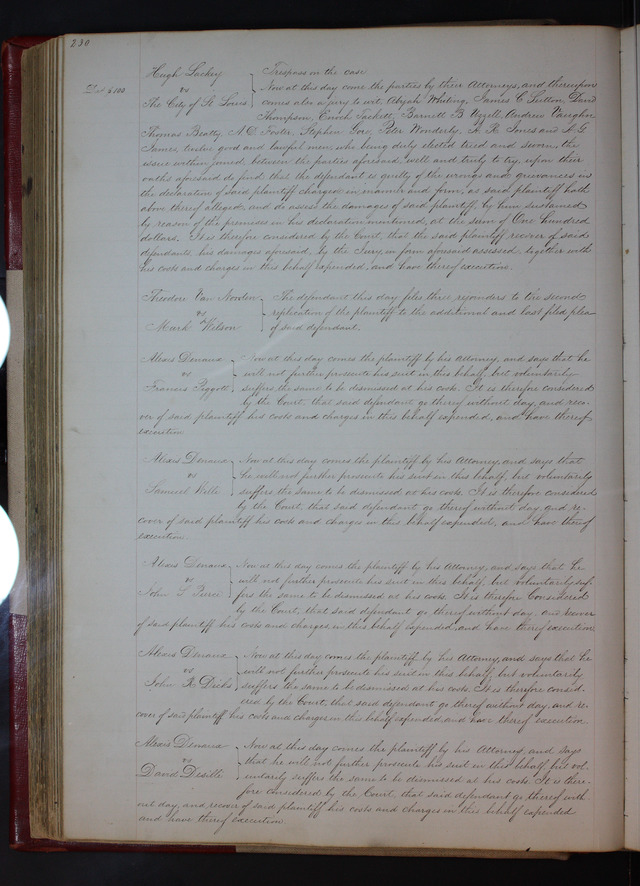 230
Hugh Lackey } Trespass on the case
Dat $100
vs } Now at this day come the parties by their Attorneys, and thereupon
The City of St Louis } comes also a jury to wit, Abijah Whiting, James C Sutton, David
Thompson, Enoch Tackett, Barnett B Uzzell, Andrew Vaughn
Thomas Beatty, N.C. Foster, Stephen Gore, Peter Wonderly, A. R. Jones and A. G.
James, twelve good and lawful men, who being duly elected tried and sworn, the
issue within joined, between the parties aforesaid, well and truly to try, upon their
oaths aforesaid do find, that the defendant is guilty of the wrongs and grievances in
the declaration of said plaintiff charged in manner and form, as said plaintiff hath
above thereof alleged, and do assess the damages of said plaintiff, by him sustained
by reason of the premises in his declaration mentioned, at the sum of One hundred
dollars. It is therefore considered by the Court, that the said plaintiff recover of said
defendants, his damages aforesaid, by the Jury, in form aforesaid assessed, together with
his costs and charges in this behalf expended, and have thereof execution.
Theodore Van Norden } The defendant this day files three rejoinders to the second
vs } replication of the plaintiff to the additional and last filed plea
Mark Wilson } of said defendant.
Alexis Denaux } Now at this day comes the plaintiff by his Attorney, and says that he
vs } will not further prosecute his suit in this behalf, but voluntarily
Francis Piggott } suffers the same to be dismissed at his costs. It is therefore considered
by the Court, that said defendant go thereof without day, and reco-
ver of said plaintiff his costs and charges in this behalf expended, and have thereof
execution.
Alexis Denaux } Now at this day comes the plaintiff by his Attorney, and says that
vs } he will not further prosecute his suit in this behalf, but voluntarily
Samuel Wells } suffers the same to be dismissed at his costs. It is therefore considered
by the Court, that said defendant go thereof without day, and re-
cover of said plaintiff his costs and charges in this behalf expended, and have thereof
execution.
Alexis Denaux } Now at this day comes the plaintiff by his Attorney, and says that he
vs } will not further prosecute his suit in this behalf, but voluntarily suf-
John S Pierce } fers the same to be dismissed at his costs. It is therefore considered
by the Court, that said defendant go thereof without day, and recover
of said plaintiff his costs and charges, in this behalf expended, and have thereof execution
Alexis Denaux } Now at this day comes the plaintiff by his Attorney, and says that he
vs } will not further prosecute his suit in this behalf, but voluntarily
John R } suffers the same to be dismissed at his costs. It is therefore consid-
ered by the Court, that said defendant go thereof without day, and re-
cover of said plaintiff his costs and charges in this behalf expended and have thereof execution
Alexis Denaux } Now at this day comes the plaintiff by his Attorney, and says
vs } that he will not further prosecute his suit in this behalf but vol-
David Desille } untarily suffers the same to be dismissed at his costs. It is there-
fore considered by the Court, that said defendant go thereof with-
out day, and recover of said plaintiff his costs and charges in this behalf expended
and have thereof execution.